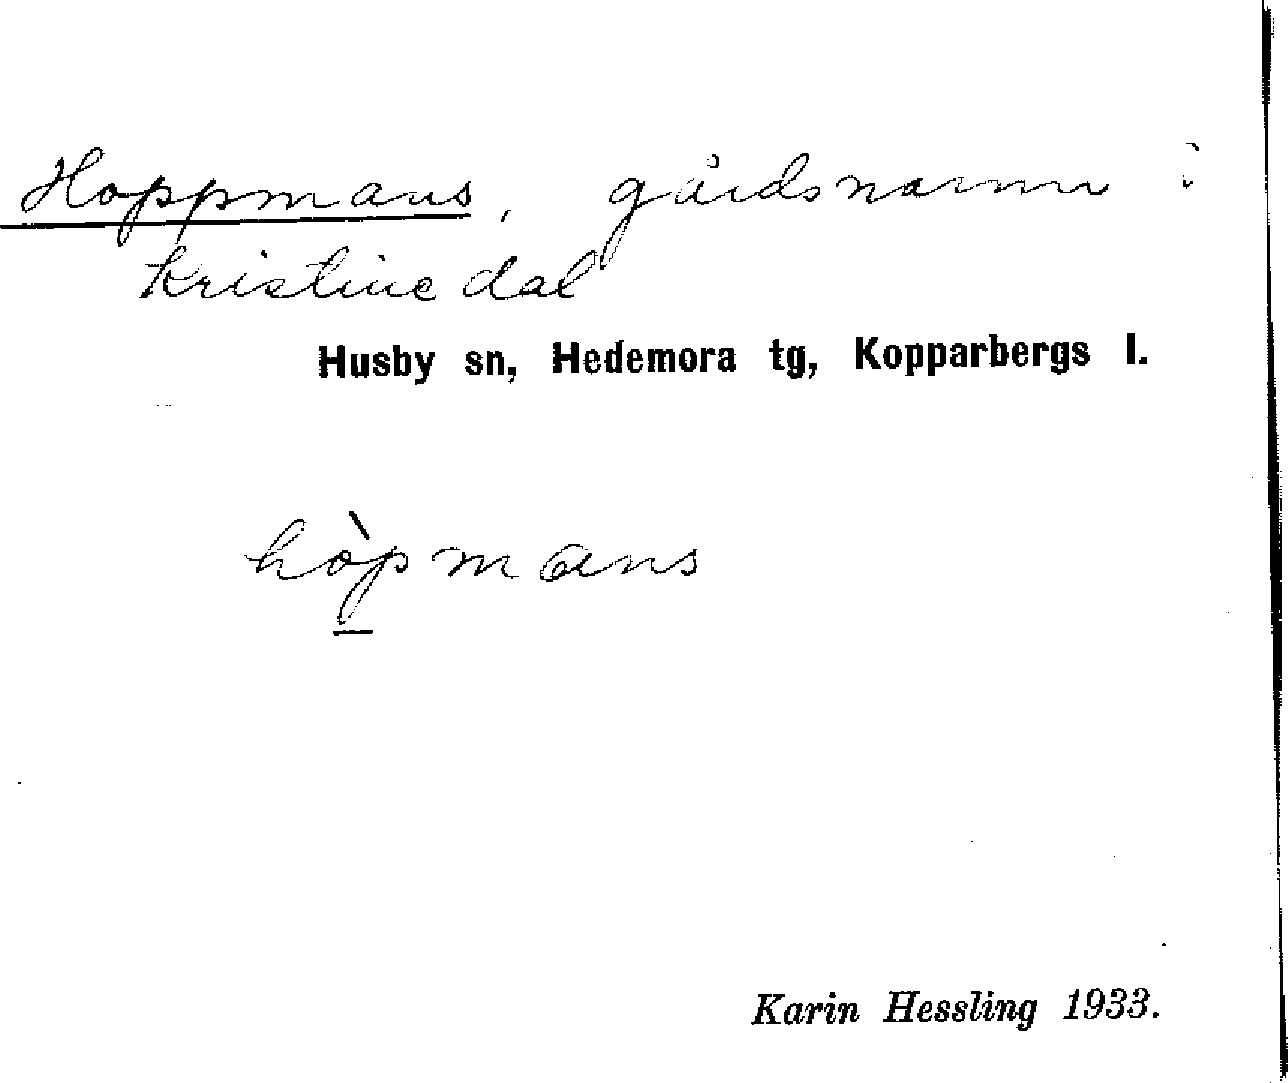 Hoppmans, gårdsnamn i
Kristinedal
Husby sn, Hedemora tg, Kopparbergs l.
hòpmans
Karin Hessling 1933.